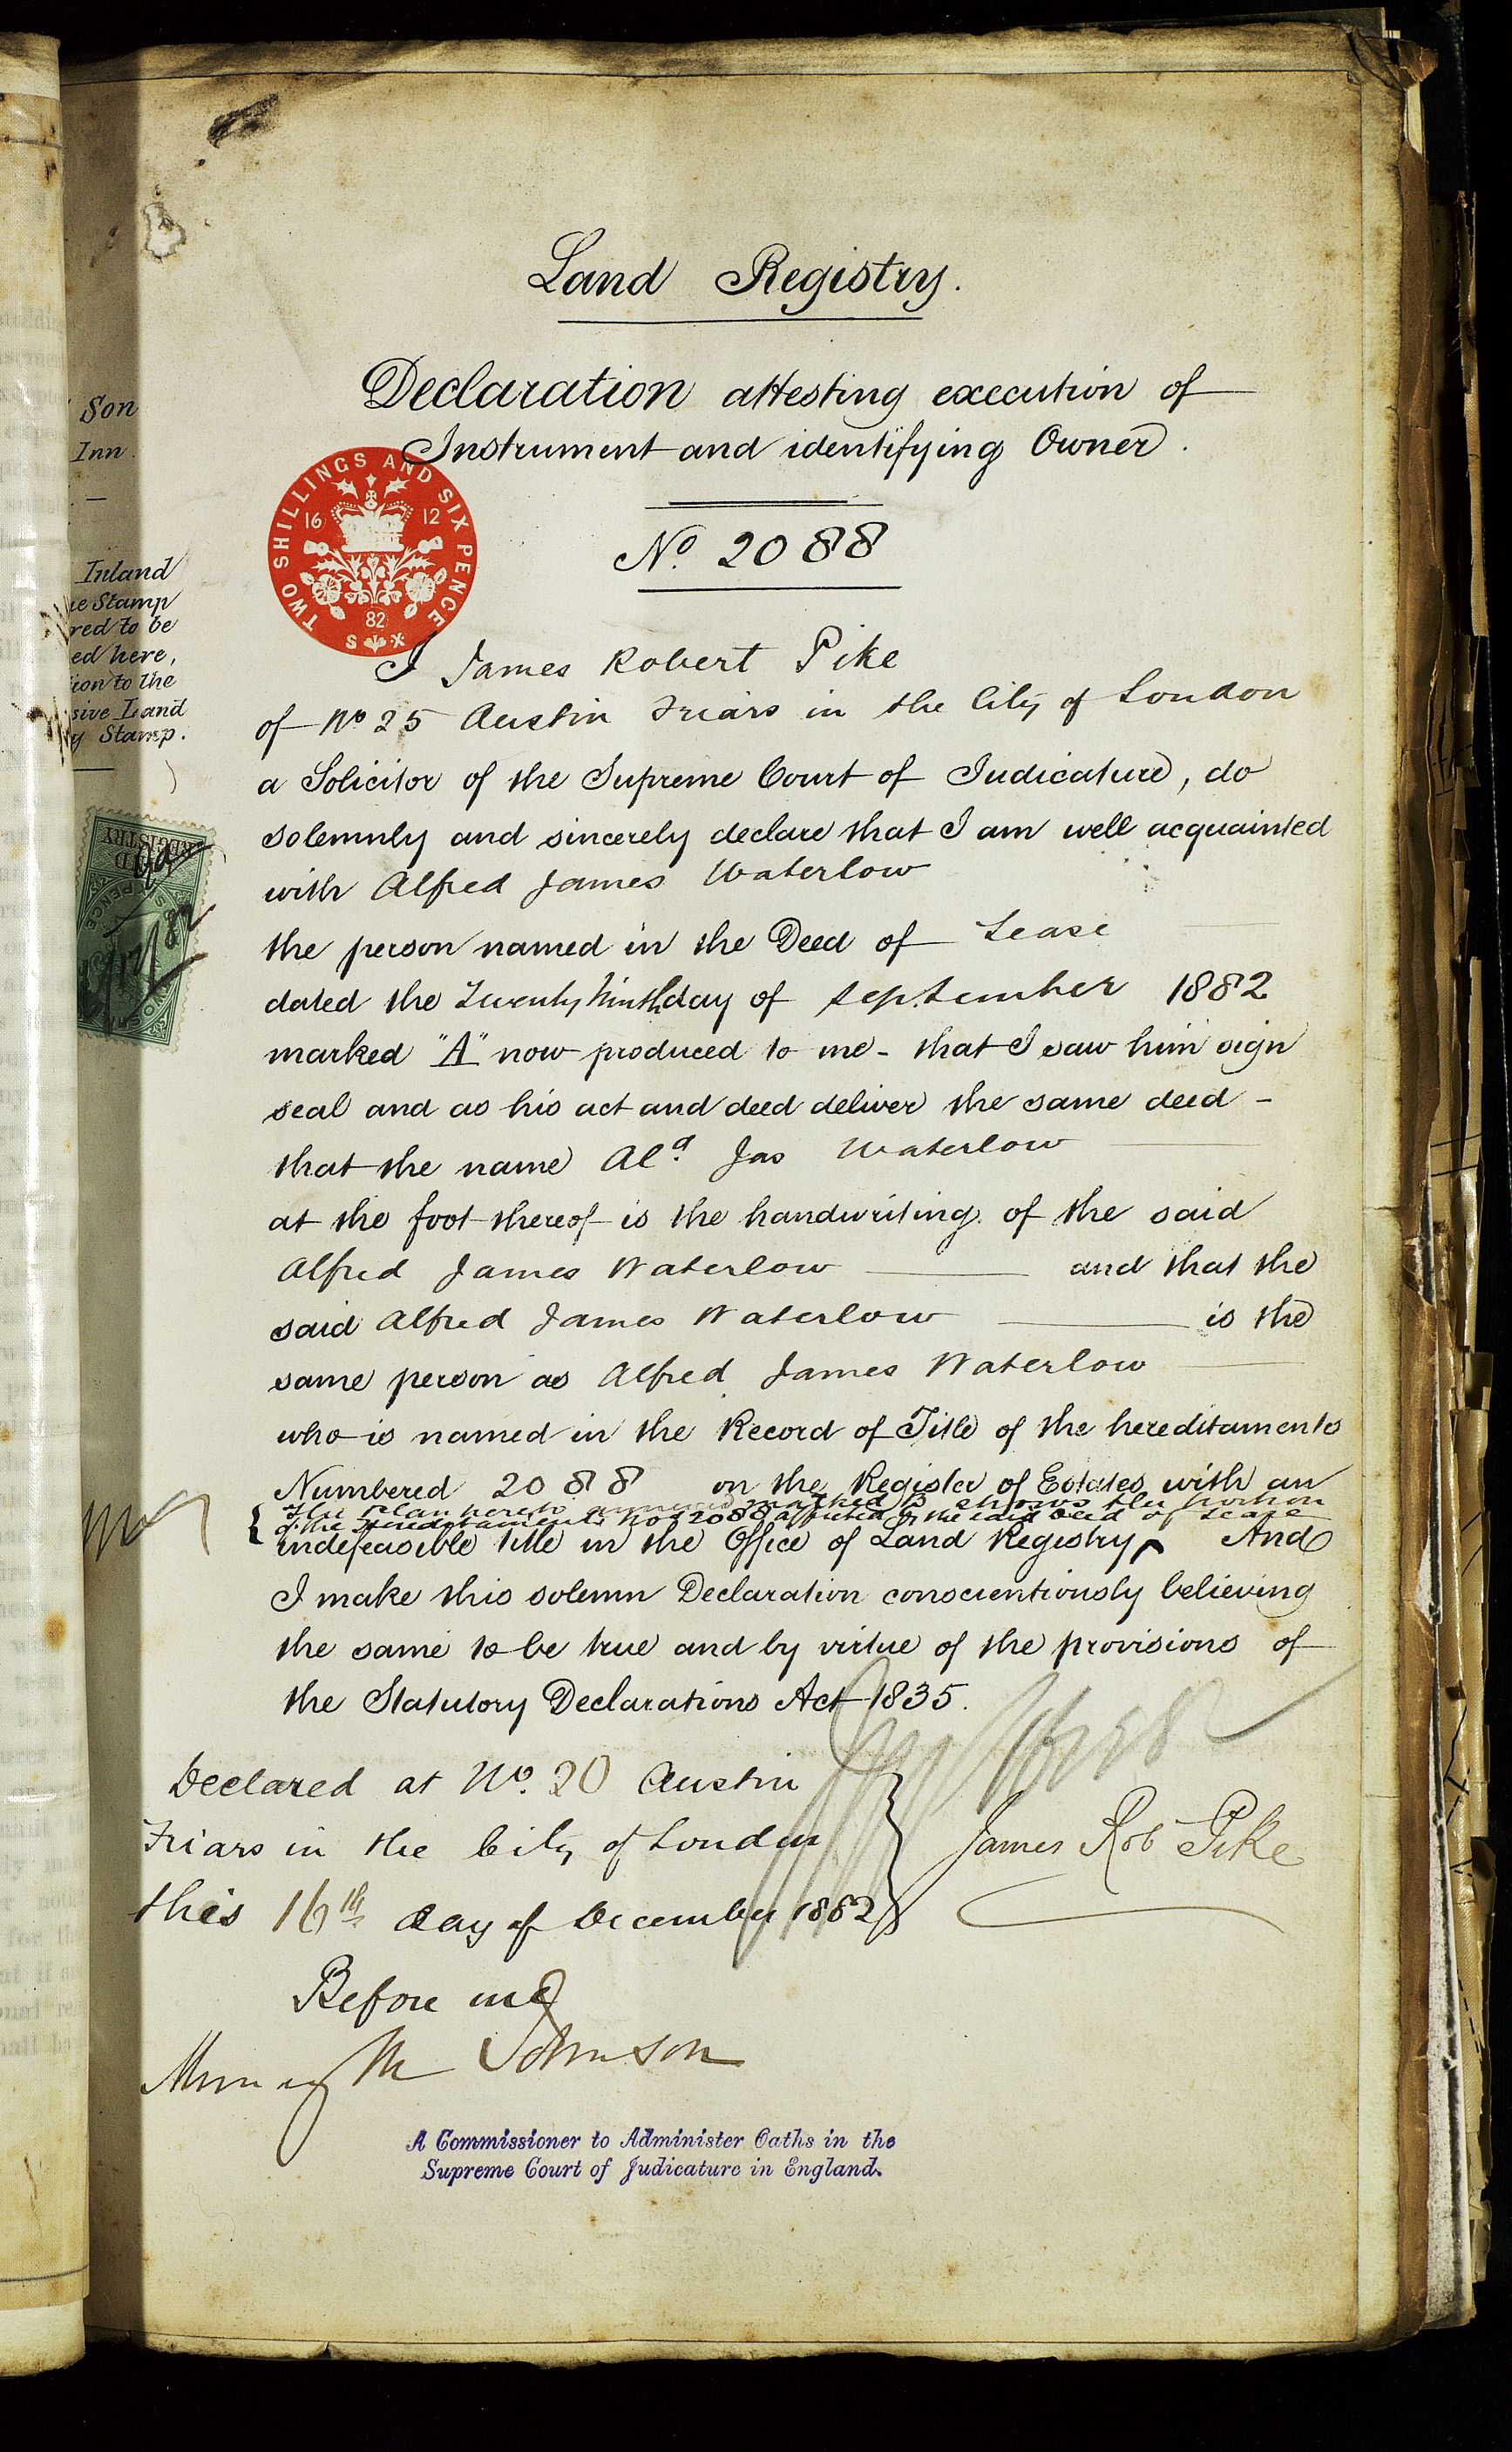 Land Registry.
Declaration attesting execution of
Instrument and identifying Owner.
TWO SHILLINGS AND SIX PENCE
16 12
82
S X
No. 2088
Son
Inn.
Inland
ue Stamp
red to be
ed here,
ion to the
sive Land
y Stamp.
REGISTRY
I James Robert Pike
of No 25 Austin Friars in the City of London
a Solicitor of the Supreme Court of Judicature, do
solemnly and sincerely declare that I am well acquainted
with Alfred James Waterlow
the person named in the Deed of Lease
dated the Twenty Ninth day of September 1882
marked "A" now produced to me - that I saw him sign
seal and as his act and deed deliver the same deed -
that the name Alfd. Jas Waterlow
at the foot thereof is the handwriting of the said
Alfred James Waterlow and that the
said Alfred James Waterlow is the
same person as Alfred James Waterlow
who is named in the Record of Title of the hereditaments
Numbered 2088 on the Register of Estates with an
The plan hereto annexed marked B shows the portion
of the Hereditaments No 2088 affected by the said Deed of Lease
indefeasible title in the Office of Land Registry And
I make this solemn Declaration conscientiously believing
the same to be true and by virtue of the provisions of
the Statutory Declarations Act 1835.
Declared at No. 20 Austin
Friars in the City of London
this 16th day of December 1882
James Rob Pike
Before me
Murray M Johnson
A Commissioner to Administer Oaths in the
Supreme Court of Judicature in England.